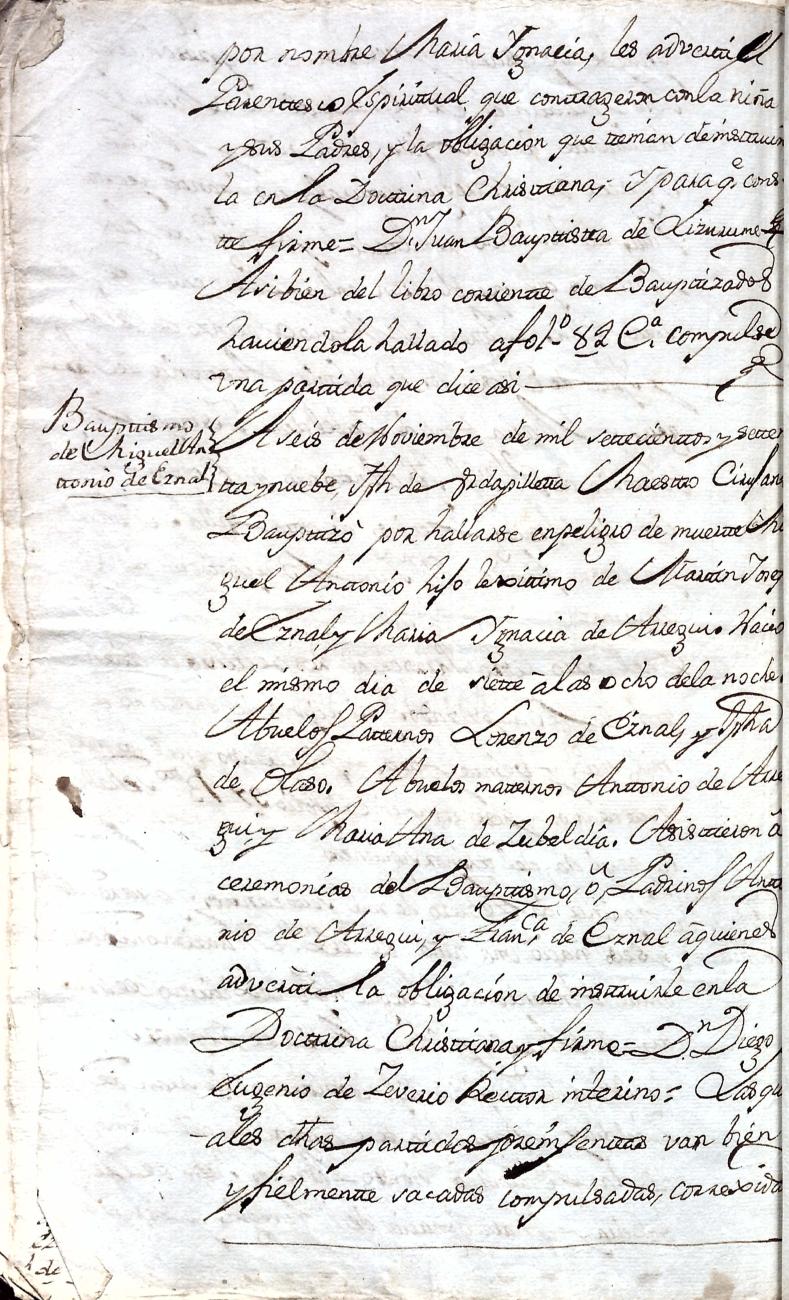 por nombre Maria Ygnacia, les adverti el
Parenttesco Espiritual, que contrageron con la niña
y sus Padres, y la obligacion que ttenian de insttruir
la en la Docttrina Christtiana, Y para q.e cons
tte firme = D.n Juan Bauptistta de Lizurume =
Asibien del libro corrientte de Bauptizados
haviendola hallado a fol.o 82 compulse
una parttida que dice asi
Bauptismo
de Miguel An
ttonio de Eznal
A seis de Noviembre de mil settecienttos y setten
tta y nuebe, Jph de Urdapilletta Maesttro Cirujano
Bauptizò por hallarse en peligro de muertte Mi
guel Anttonio hijo lexittimo de Marttin Josep
de Eznal, y Maria Ygnacia de Arregui. Nacio
el mismo dia de siette â las ocho de la noche.
Abuelos Patternos Lorenzo de Eznal, y Jpha
de Olaso. Abuelos matternos Anttonio de Arre
gui, y Maria Ana de Zubeldia. Asisttieron â
ceremonias del Bauptismo, Padrinos Antto
nio de Arregui, y Fran.ca de Eznal â quienes
advertti la obligacion de insttruirle en la
Docttrina Christtiana y firme = D.n Diego
Eugenio de Zeverio Recttor interino = Las qu
ales dhas parttidas preinsenttas van bien
y fielmentte sacadas compulsadas, correxida